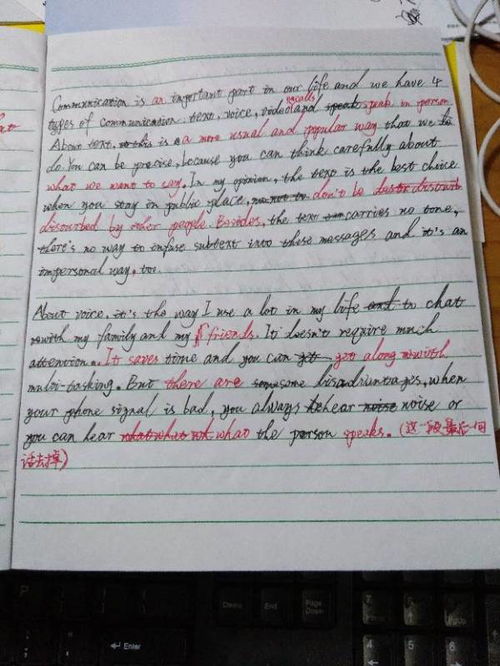 Communication is an important part in our life and we have 4
types of communication, text, voice, video calls and speak in person
About text, this is a more usual and popular way that we
do. You can be precise, because you can think carefully about
what we want to say. In my opinion, the text is the best choice
when you stay in public place, don't be disturb
disturbed by other people. Besides, the text carries no tone,
there's no way to infuse subtext into these messages and it's an
impersonal way, too.
About voice, it's the way I use a lot in my life to chat
with my family and my friends. It doesn't require much
attention. It saves time and you can get along with
multi-tasking. But there are some disadvantages, when
your phone signal is bad, you always hear noise or
you can hear what the person speaks. (这一段最后一句
话去掉)
Enter
End
Page
Down
7
8
9
4
5
6